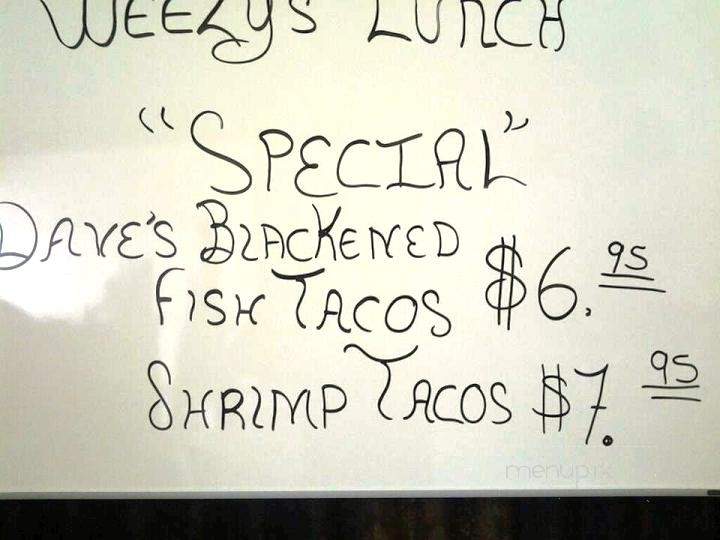 WEEZY'S LUNCH
"SPECIAL"
DAVE'S BLACKENED
FISH TACOS $6.95
SHRIMP TACOS $7.95
menupix